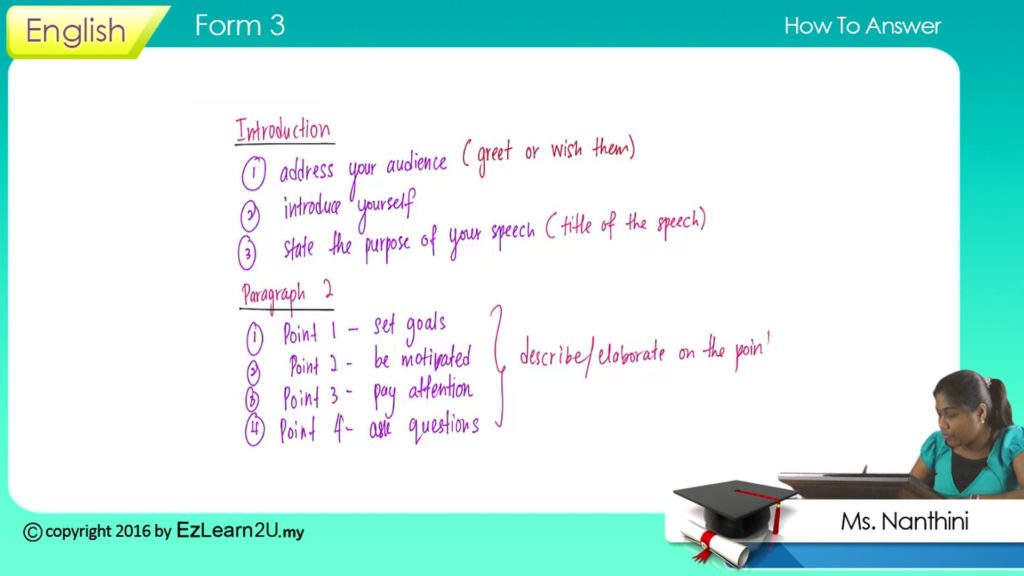 English
Form 3
How To Answer
Introduction
① address your audience (greet or wish them)
② introduce yourself
③ state the purpose of your speech (title of the speech)
Paragraph 2
① Point 1 - set goals
② Point 2 - be motivated
③ Point 3 - pay attention
④ Point 4 - ask questions
describe/elaborate on the poin
Ms. Nanthini
© copyright 2016 by EzLearn2U.my